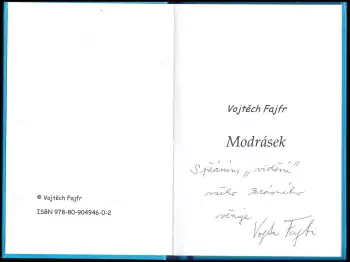 © Vojtěch Fajfr
ISBN 978-80-904946-0-2
Vojtěch Fajfr
Modrásek
S přáním „vidění"
věnuje
Vojta Fajfr